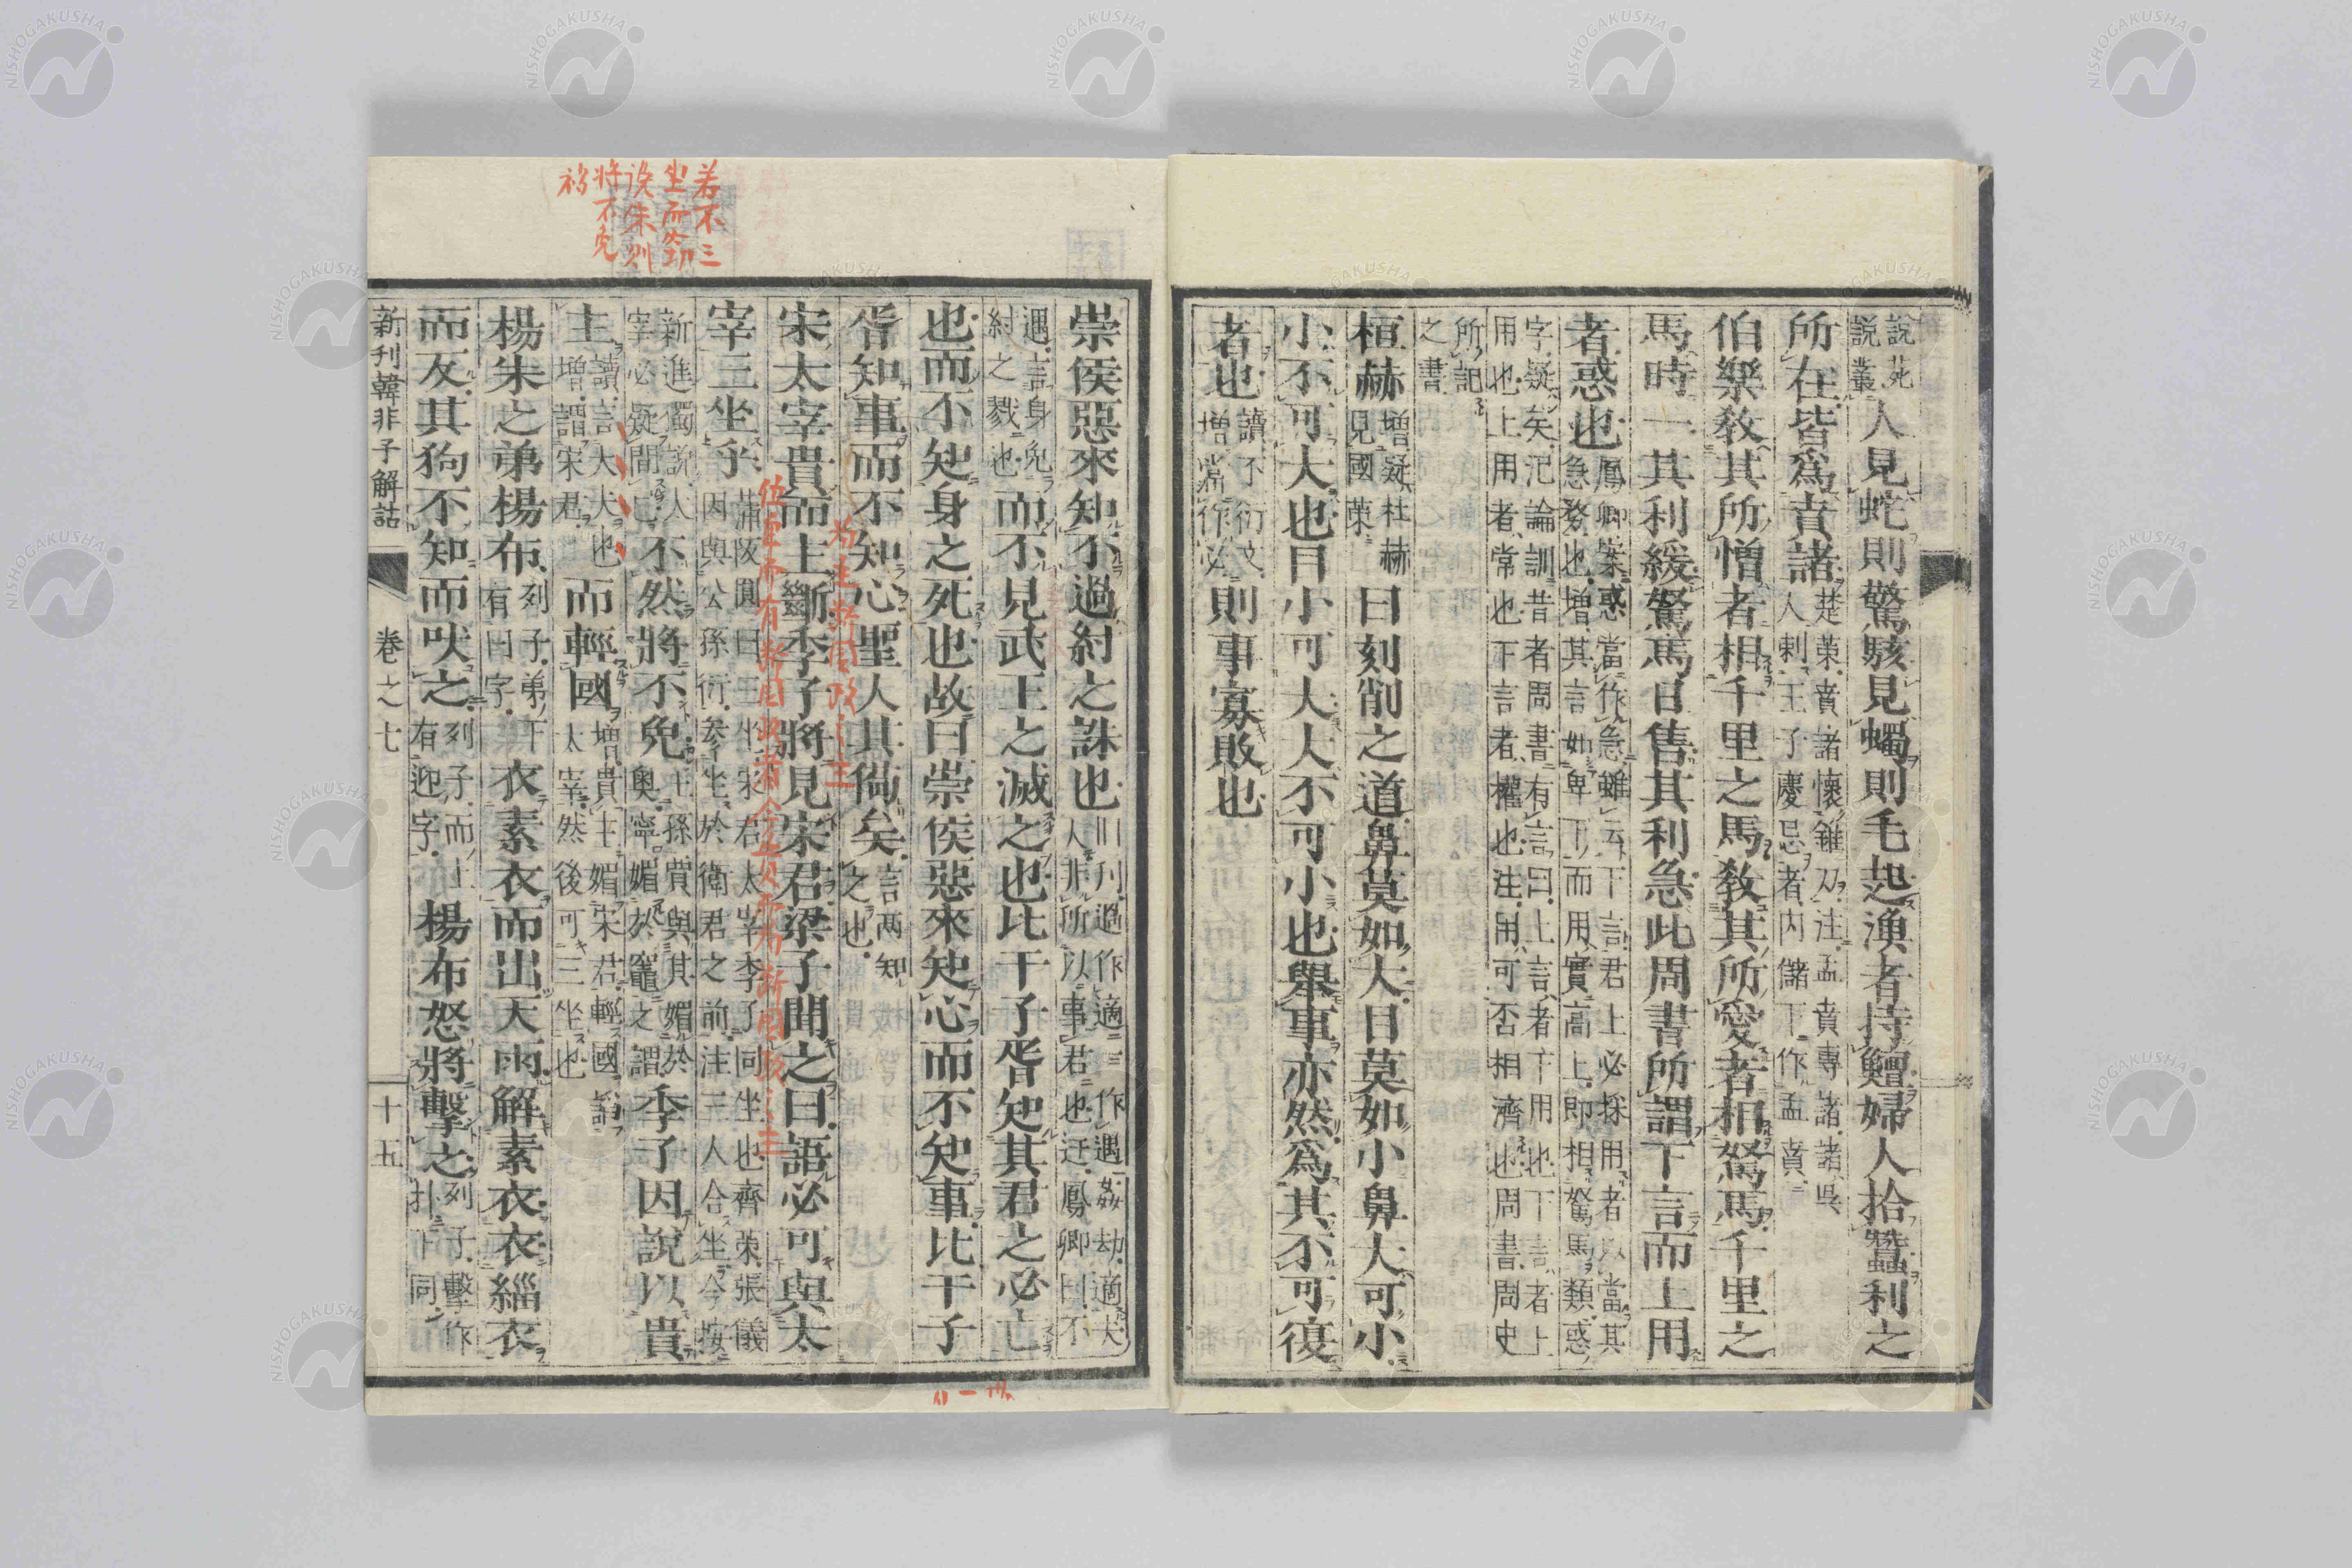 説苑説叢人見蛇則驚駭見蠋則毛起漁者持鱣婦人拾蠶利之
所在皆爲賁諸楚策賁諸懷錐刃注孟賁專諸諸呉人刺王子慶忌者内儲下作孟賁
伯樂敎其所憎者相千里之馬敎其所愛者相駑馬千里之
馬時一其利緩駑馬日售其利急此周書所謂下言而上用
者惑也鳳卿案惑當作急雖云下言君上必採用者以當其急務也増其言如卑下而用實高上即相駑馬類惑
字疑矣氾論訓昔者周書有言曰上言者下用也下言者上用也上用者常也下言者權也注用可否相濟也周書周史
所記之書
桓赫増疑杜赫見國策曰刻削之道鼻莫如大目莫如小鼻大可小
小不可大也目小可大大不可小也舉事亦然爲其不可復
者也讀不衍文増當作必則事寡敗也
崇侯惡來知不適紂之誅也旧刊適作適一作遇姦劫適大人非所以事君也迂鳳卿曰不
遇言身免紂之戮也而不見武王之滅之也比干子胥知其君之必亡
也而不知身之死也故曰崇侯惡來知心而不知事比干子
胥知事而不知心聖人其備矣言兩知之也
宋太宰貴而主斷季子將見宋君梁子聞之曰語必可與太
宰三坐乎蒲阪圓曰三坐宋君太宰季子同坐也齊策張儀因與公孫衍參坐於衛君之前注三人合坐今按
新進獨説人宰必疑間己不然將不免王孫賈與其媚於奧寧媚於竈之謂季子因説以貴
主讀言大夫也増謂宋君而輕國増貴主媚宋君輕國説太宰然後可三坐也
楊朱之弟楊布列子弟下有曰字衣素衣而出天雨解素衣衣緇衣
而反其狗不知而吠之列子而上有迎字楊布怒將擊之列子擊作扑下同
新刊韓非子解詁 卷之七 十五
若不三
坐而竊
説朱則
將不免
禍